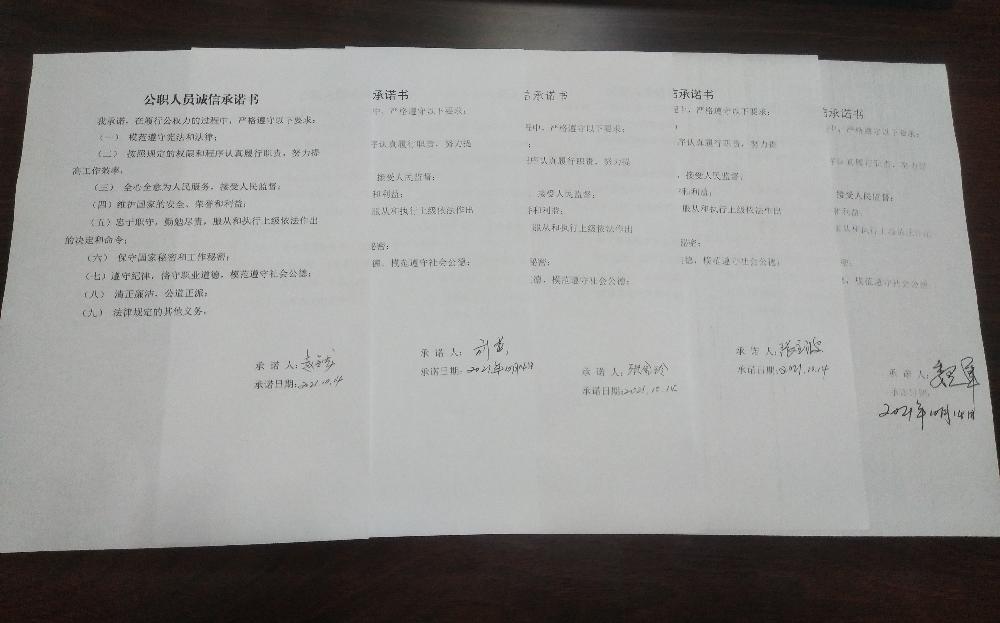 公职人员诚信承诺书
我承诺，在履行公权力的过程中，严格遵守以下要求：
（一） 模范遵守宪法和法律；
（二） 按照规定的权限和程序认真履行职责，努力提
高工作效率；
（三） 全心全意为人民服务，接受人民监督；
（四）维护国家的安全、荣誉和利益；
（五）忠于职守，勤勉尽责，服从和执行上级依法作出
的决定和命令；
（六） 保守国家秘密和工作秘密；
（七）遵守纪律，恪守职业道德，模范遵守社会公德；
（八） 清正廉洁，公道正派；
（九） 法律规定的其他义务。
承 诺 人：
承诺日期：2021.10.14
承诺书
中，严格遵守以下要求：
序认真履行职责，努力提
接受人民监督；
和利益；
服从和执行上级依法作出
秘密；
德，模范遵守社会公德；
承 诺 人：
承诺日期：2021年10月14日
信承诺书
程中，严格遵守以下要求：
；
程序认真履行职责，努力提
，接受人民监督；
和利益；
服从和执行上级依法作出
秘密；
道德，模范遵守社会公德；
承 诺 人：
承诺日期：2021.10.14
信承诺书
程中，严格遵守以下要求：
；
序认真履行职责，努力提
，接受人民监督；
和利益；
服从和执行上级依法作出
秘密；
道德，模范遵守社会公德；
承 诺 人：
承诺日期：2021.10.14
信承诺书
中，严格遵守以下要求：
序认真履行职责，努力提
接受人民监督；
利益；
服从和执行上级依法作出
密；
，模范遵守社会公德；
承 诺 人：
承诺日期：
2021年10月14日